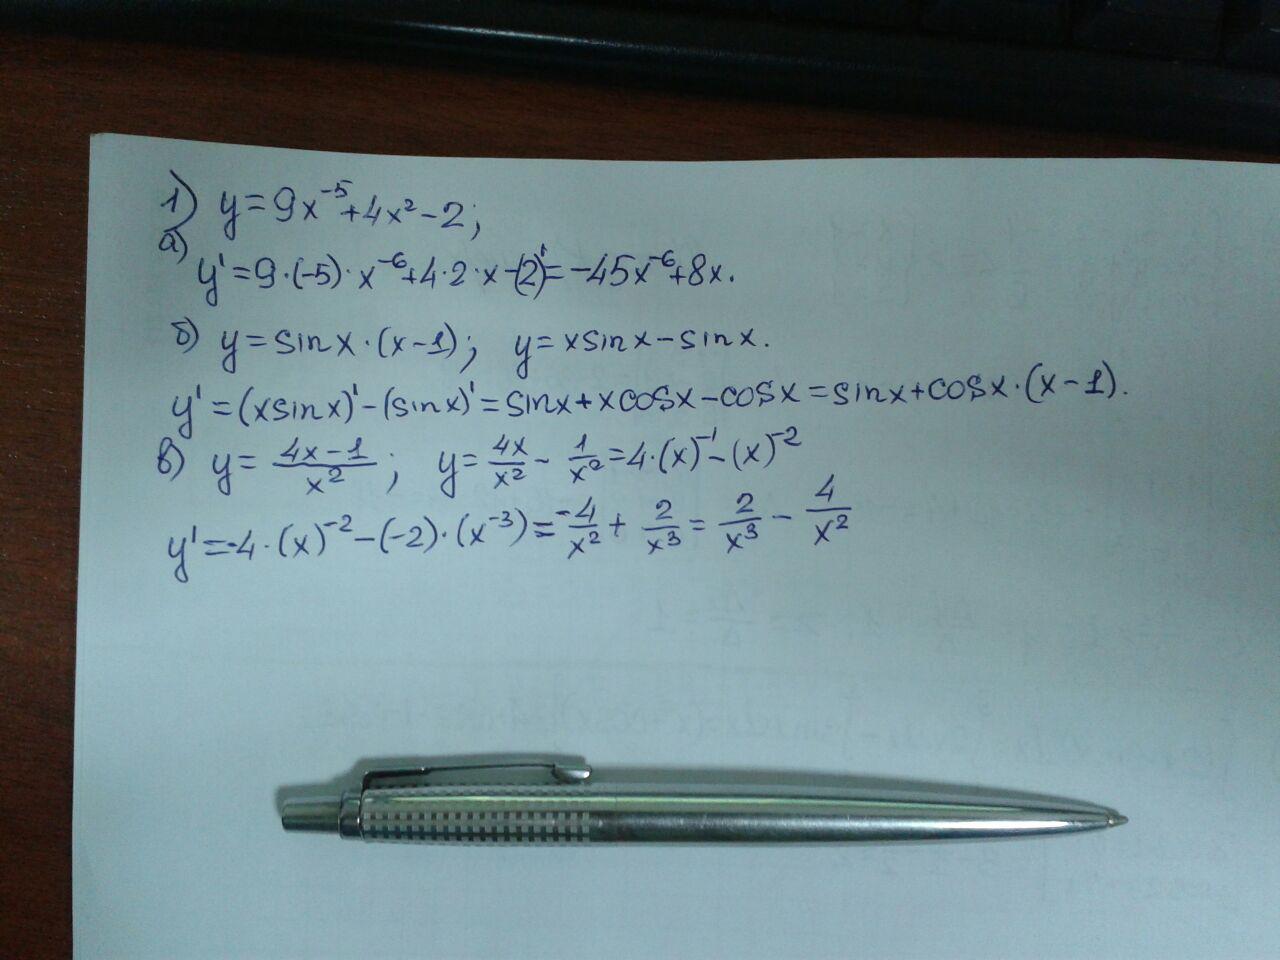 1) y = 9x⁻⁵ + 4x² − 2;
а) y' = 9·(−5)·x⁻⁶ + 4·2·x − (2)' = −45x⁻⁶ + 8x.
б) y = sinx·(x−1); y = xsinx − sinx.
y' = (xsinx)' − (sinx)' = sinx + xcosx − cosx = sinx + cosx·(x−1).
в) y = (4x−1)/x²; y = 4x/x² − 1/x² = 4·(x)⁻¹ − (x)⁻²
y' = −4·(x)⁻² − (−2)·(x⁻³) = −4/x² + 2/x³ = 2/x³ − 4/x²